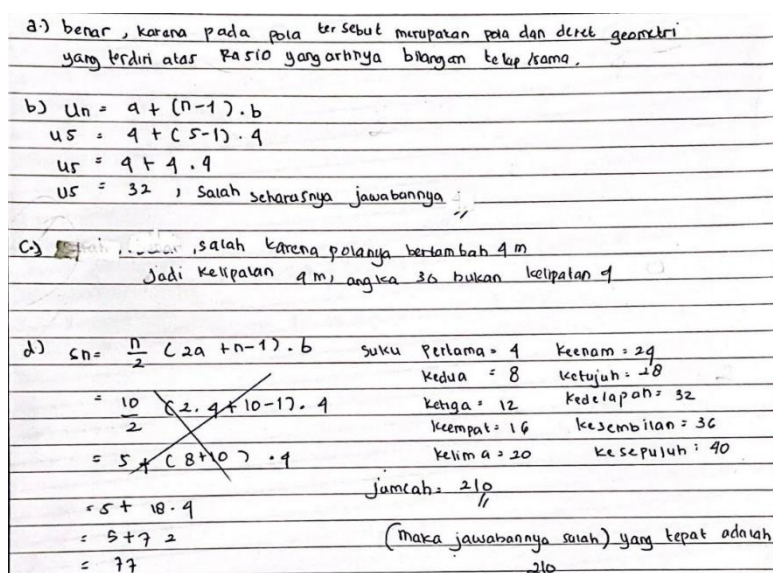 a.) benar, karana pada pola tersebut merupakan pola dan deret geometri
yang terdiri atas Rasio yang artinya bilangan tetap /sama.
b) Un = a + (n-1) . b
U5 = 4 + (5-1) . 4
U5 = 4 + 4 . 4
U5 = 32 , salah seharusnya jawabannya
c.) , salah karena polanya bertambah 4 m
jadi kelipatan 4 m, angka 30 bukan kelipatan 4
d) Sn = n/2 (2a + n-1) . b
= 10/2 (2. 4 + 10-1). 4
= 5 + (8+10) . 4
= 5 + 18 . 4
= 5 + 72
= 77
suku pertama = 4 keenam = 24
kedua = 8 ketujuh = 28
ketiga = 12 kedelapan = 32
keempat = 16 kesembilan = 36
kelima = 20 kesepuluh : 40
jumlah = 210
(maka jawabannya salah) yang tepat adalah
210